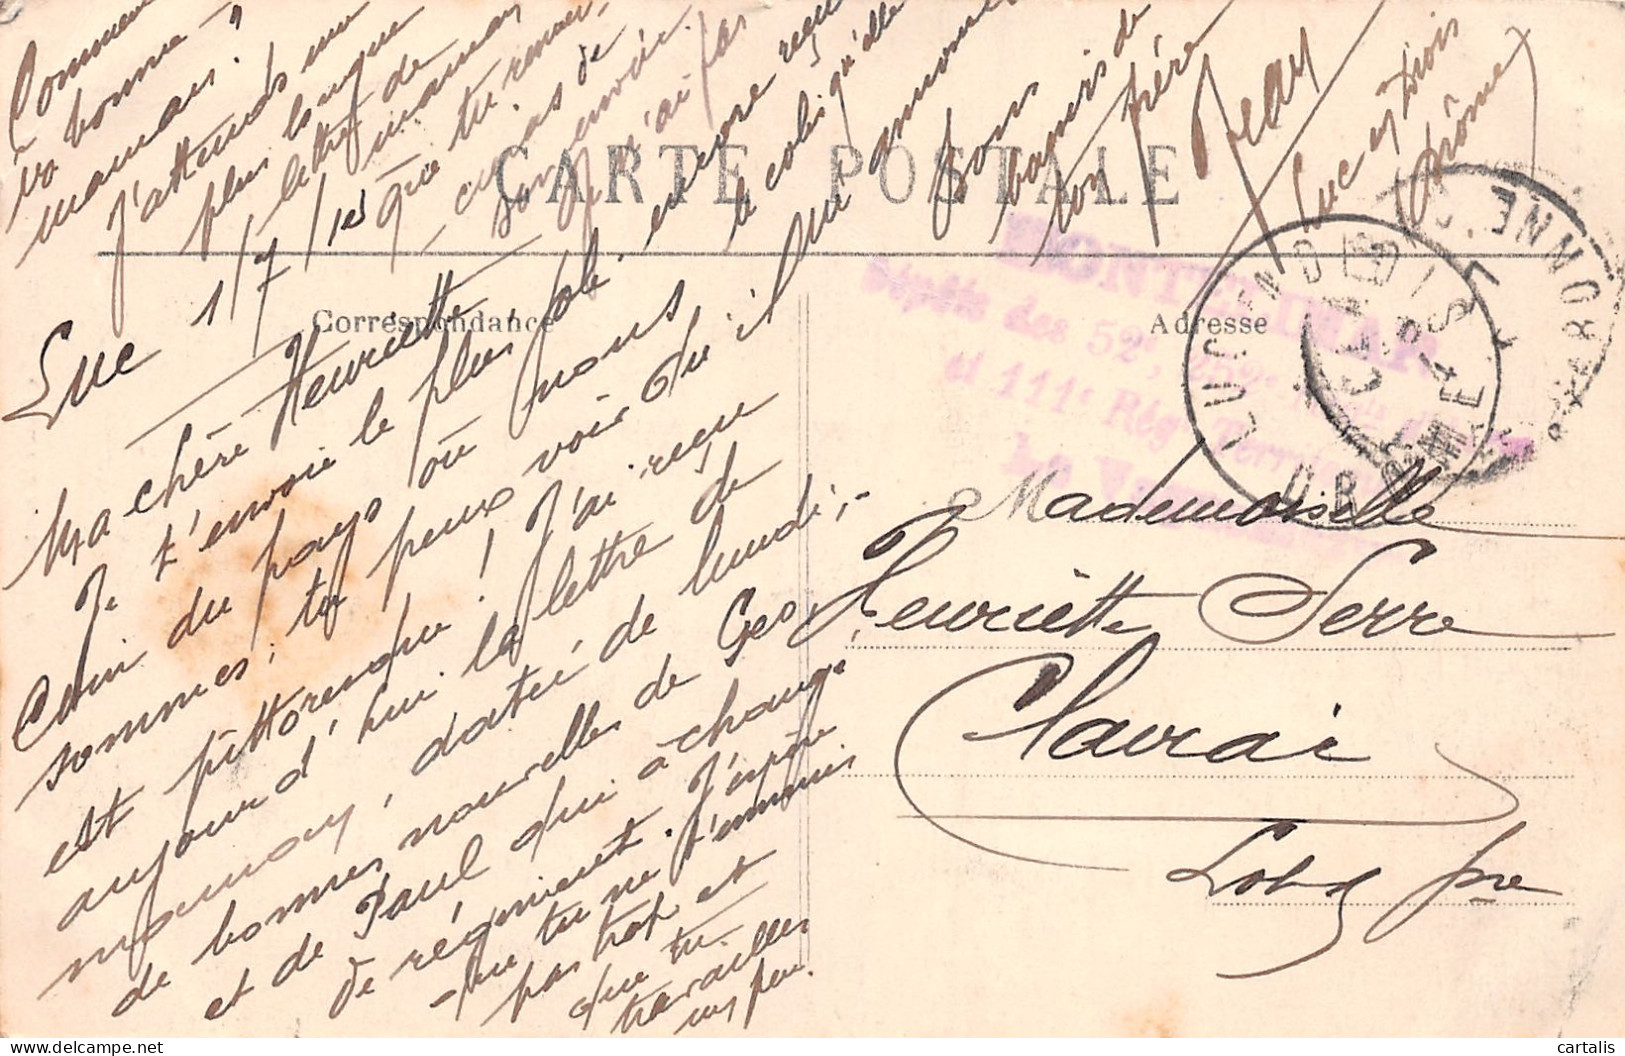 CARTE POSTALE
Correspondance
Adresse
Luc 1/7/15
Ma chère Henriette
Je t'envoie le plus joli
coin du pays où nous
sommes; tu peux voir qu'il
est pittoresque! J'ai reçu
aujourd'hui la lettre de
maman, datée de lundi,
de bonnes nouvelles de Geo
et de Paul qui a changé
de régiment. J'espère
que tu ne t'ennuies
pas trop et
que tu
travailles
un peu.
Comment
va bonne
maman?
J'attends une
plus longue
lettre de
maman
que tu
en cas de
son envoi.
Je n'ai pas
encore reçu
le colis qu'elle
m'annonce
Bons
baisers de
ton frère
Jean
Luc en Diois
(Drôme)
MONTELIMAR
Dépôts des 52e, 252e
et 111e Régt Territorial
LUC EN DIOIS
DROME
Mademoiselle
Henriette Serre
Clairac
Lot & Gne